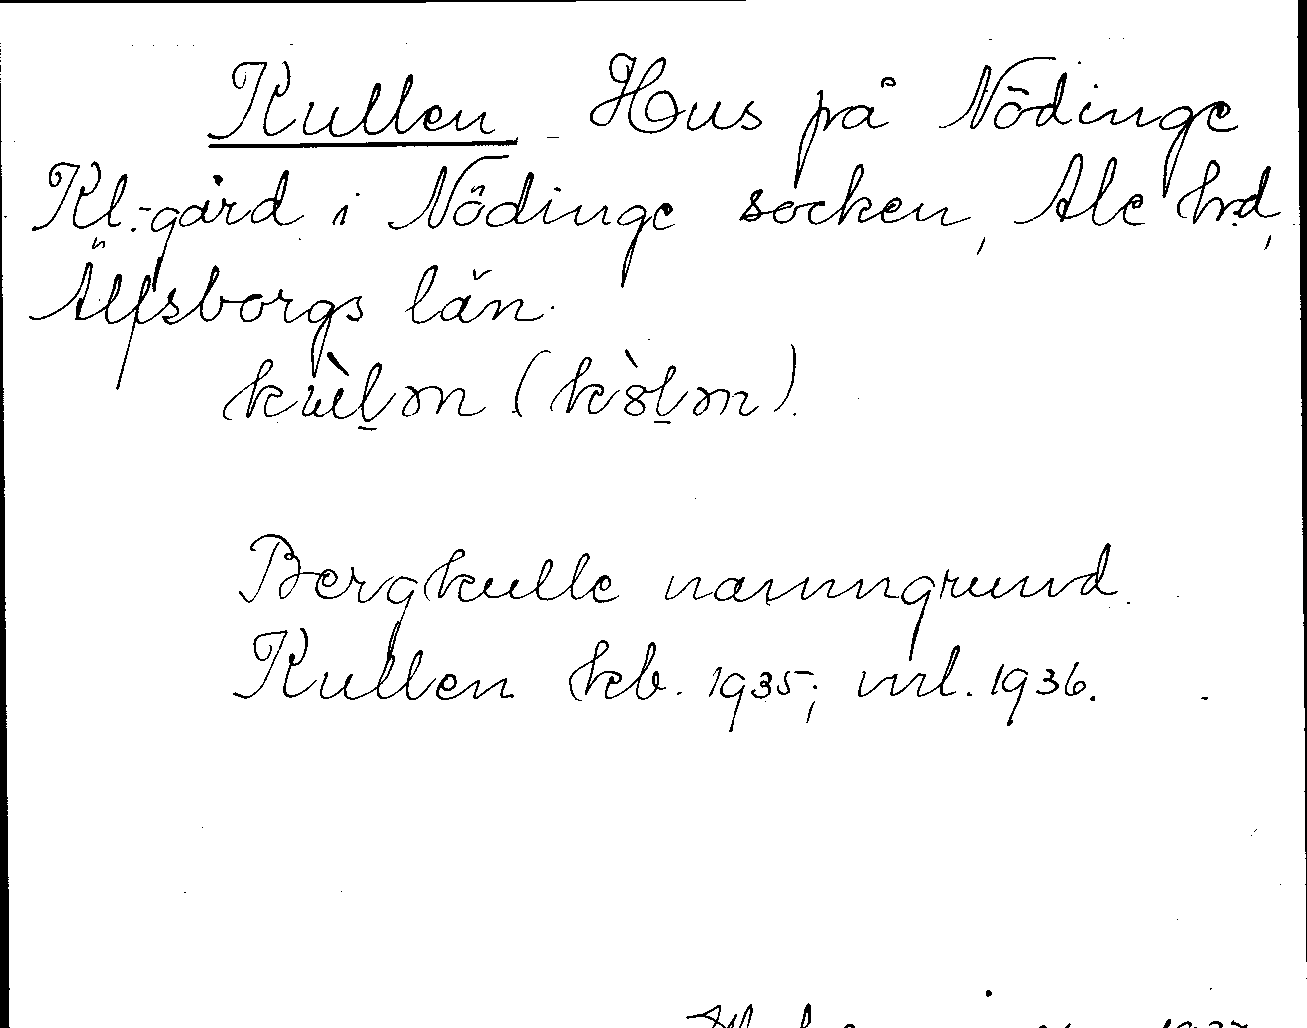 Kullen Hus på Nödinge
Kl.-gård i Nödinge socken, Ale hrd,
Älfsborgs län.
kùl̠ən (kòl̠ən).
Bergkulle namngrund.
Kullen kb. 1935; ml. 1936.
1937